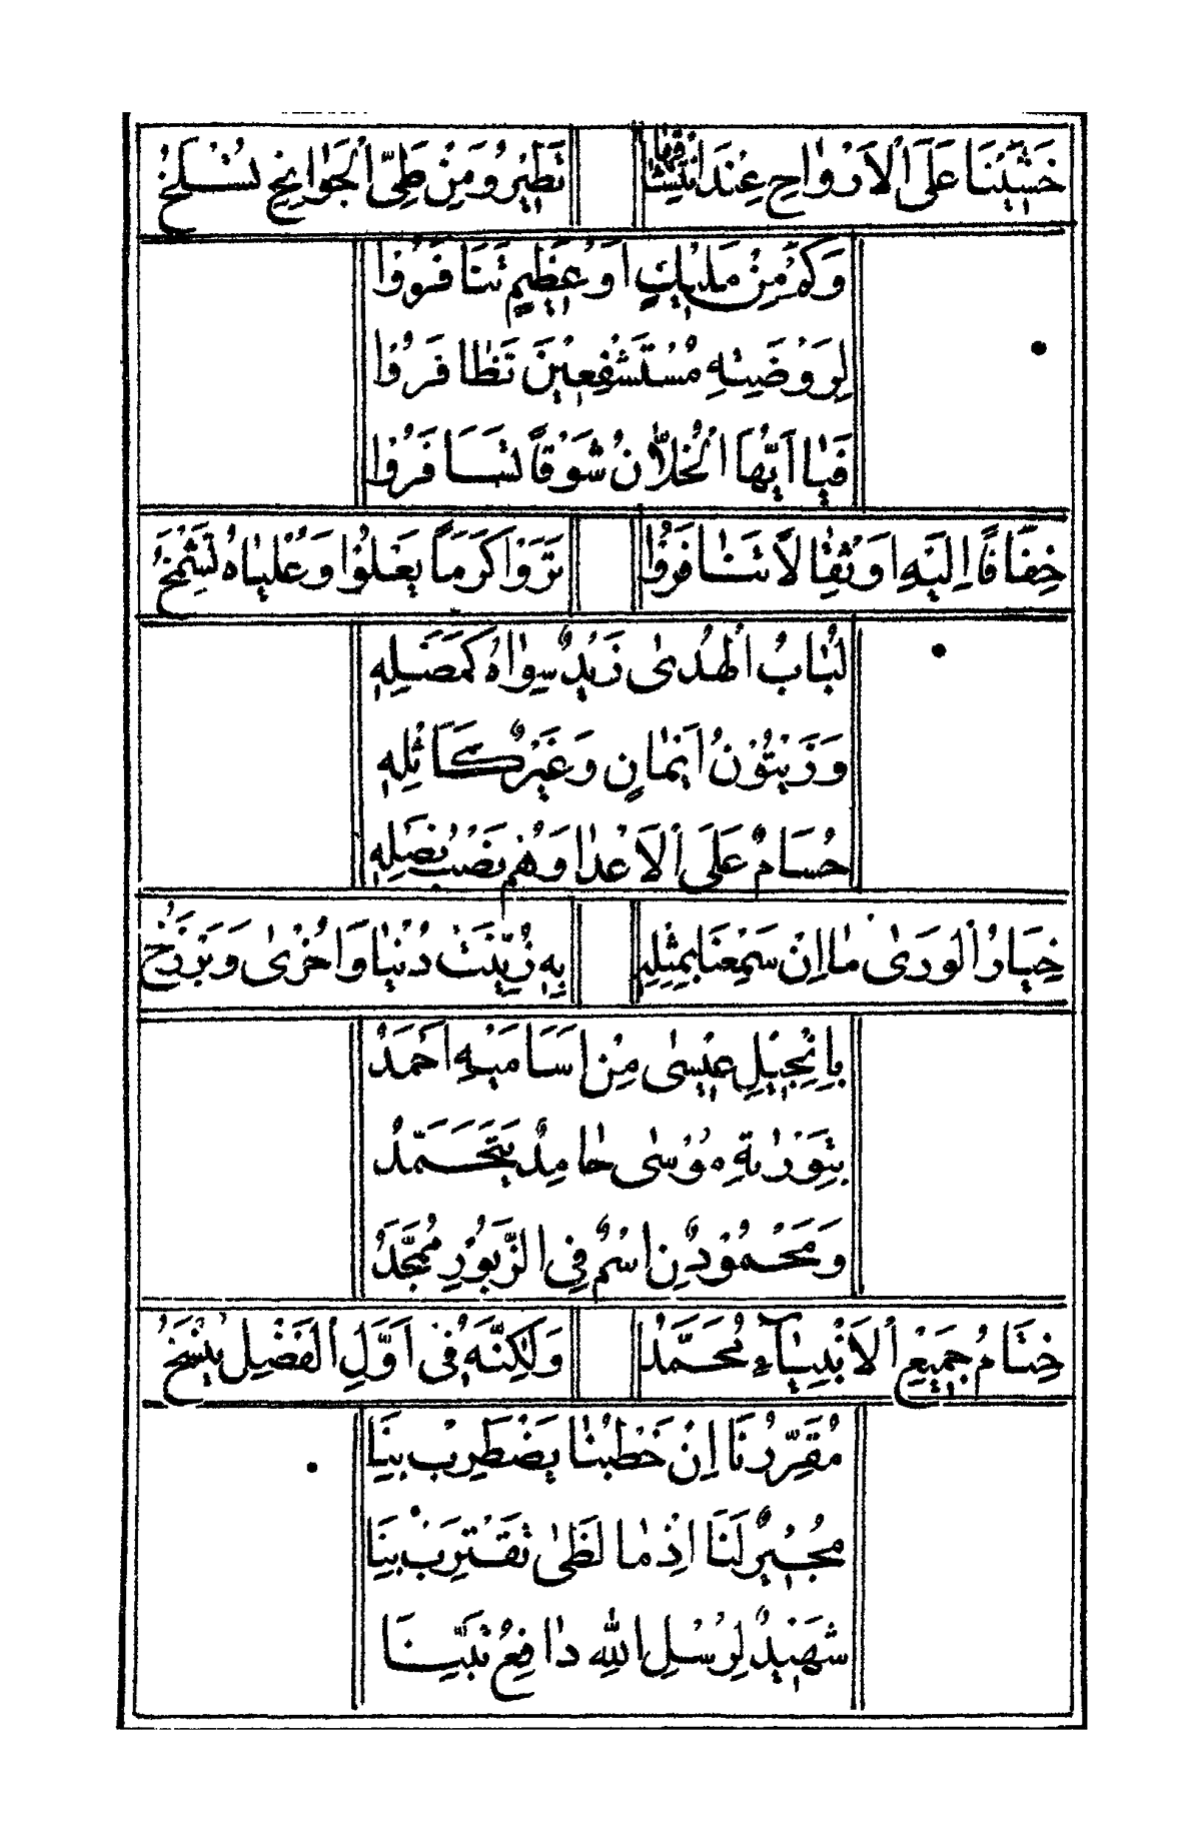 خَشِيْنَا عَلَى الْاَرْوَاحِ عِنْدَ انْتِشَاقِهَا تَطِيْرُ وَمِنْ طَيِّ الْجَوَانِحِ تُسْلَخُ
وَكَمْ مِنْ مَلِيْكٍ اَوْ عَظِيْمٍ تَنَافَرُوْا
لِرَوْضَتِهٖ مُسْتَشْفِعِيْنَ تَظَافَرُوْا
فَيَا اَيُّهَا الْخُلَّانُ شَوْقًا تَسَافَرُوْا
خِفَافًا اِلَيْهِ اَوْ ثِقَالًا تَنَافَرُوْا تَرَوْا كَرَمًا يَعْلُوْا وَعُلْيَاهُ تَشْمَخُ
لُبَابُ الْهُدٰى زَبَدٌ سِوَاهُ كَمَصْلِهٖ
وَزَيْتُوْنُ اِيْمَانٍ وَغَيْرٌ كَاَثْلِهٖ
حُسَامٌ عَلَى الْاَعْدَا وَهُمْ نَصْبُ نَصْلِهٖ
خِيَارُ الْوَرٰى مَا اِنْ سَمِعْنَا بِمِثْلِهٖ بِهٖ زُيِّنَتْ دُنْيَا وَاُخْرٰى وَبَرْزَخُ
بِاِنْجِيْلِ عِيْسٰى مِنْ اَسَامِيْهِ اَحْمَدُ
بِتَوْرٰىةِ مُوْسٰى حَامِدٌ يَتَحَمَّدُ
وَمَحْمُوْدُنِ اسْمٌ فِى الزَّبُوْرِ مُمَجَّدُ
خِتَامُ جَمِيْعِ الْاَنْبِيَآءِ مُحَمَّدُ وَلٰكِنَّهٗ فِىْ اَوَّلِ الْفَضْلِ يُنْسَخُ
مُقَرِّرُنَا اِنْ خَطْبُنَا يَضْطَرِبْ بِنَا
مُجِيْرٌ لَنَا اِذْ مَا لَظٰى تَقْتَرِبْ بِنَا
شَهِيْدٌ لِرُسْلِ اللهِ دَافِعُ